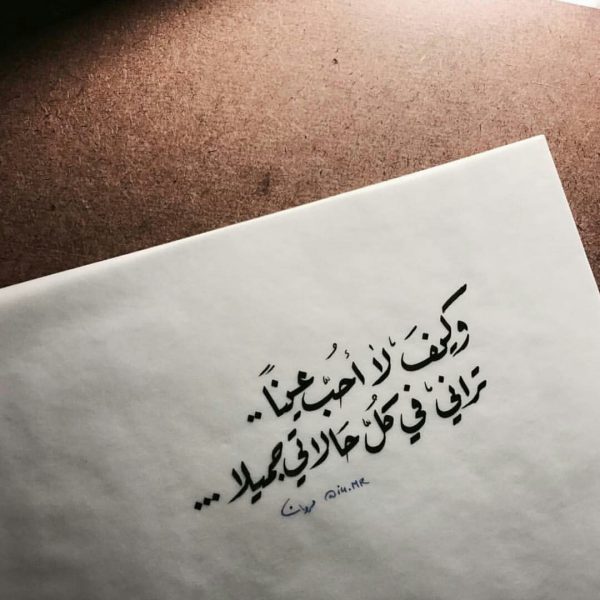 وكيفَ لا أحُبّ عيناً..
تراني في كلُّ حَالاتي جميلا...
مروان @iu.MR